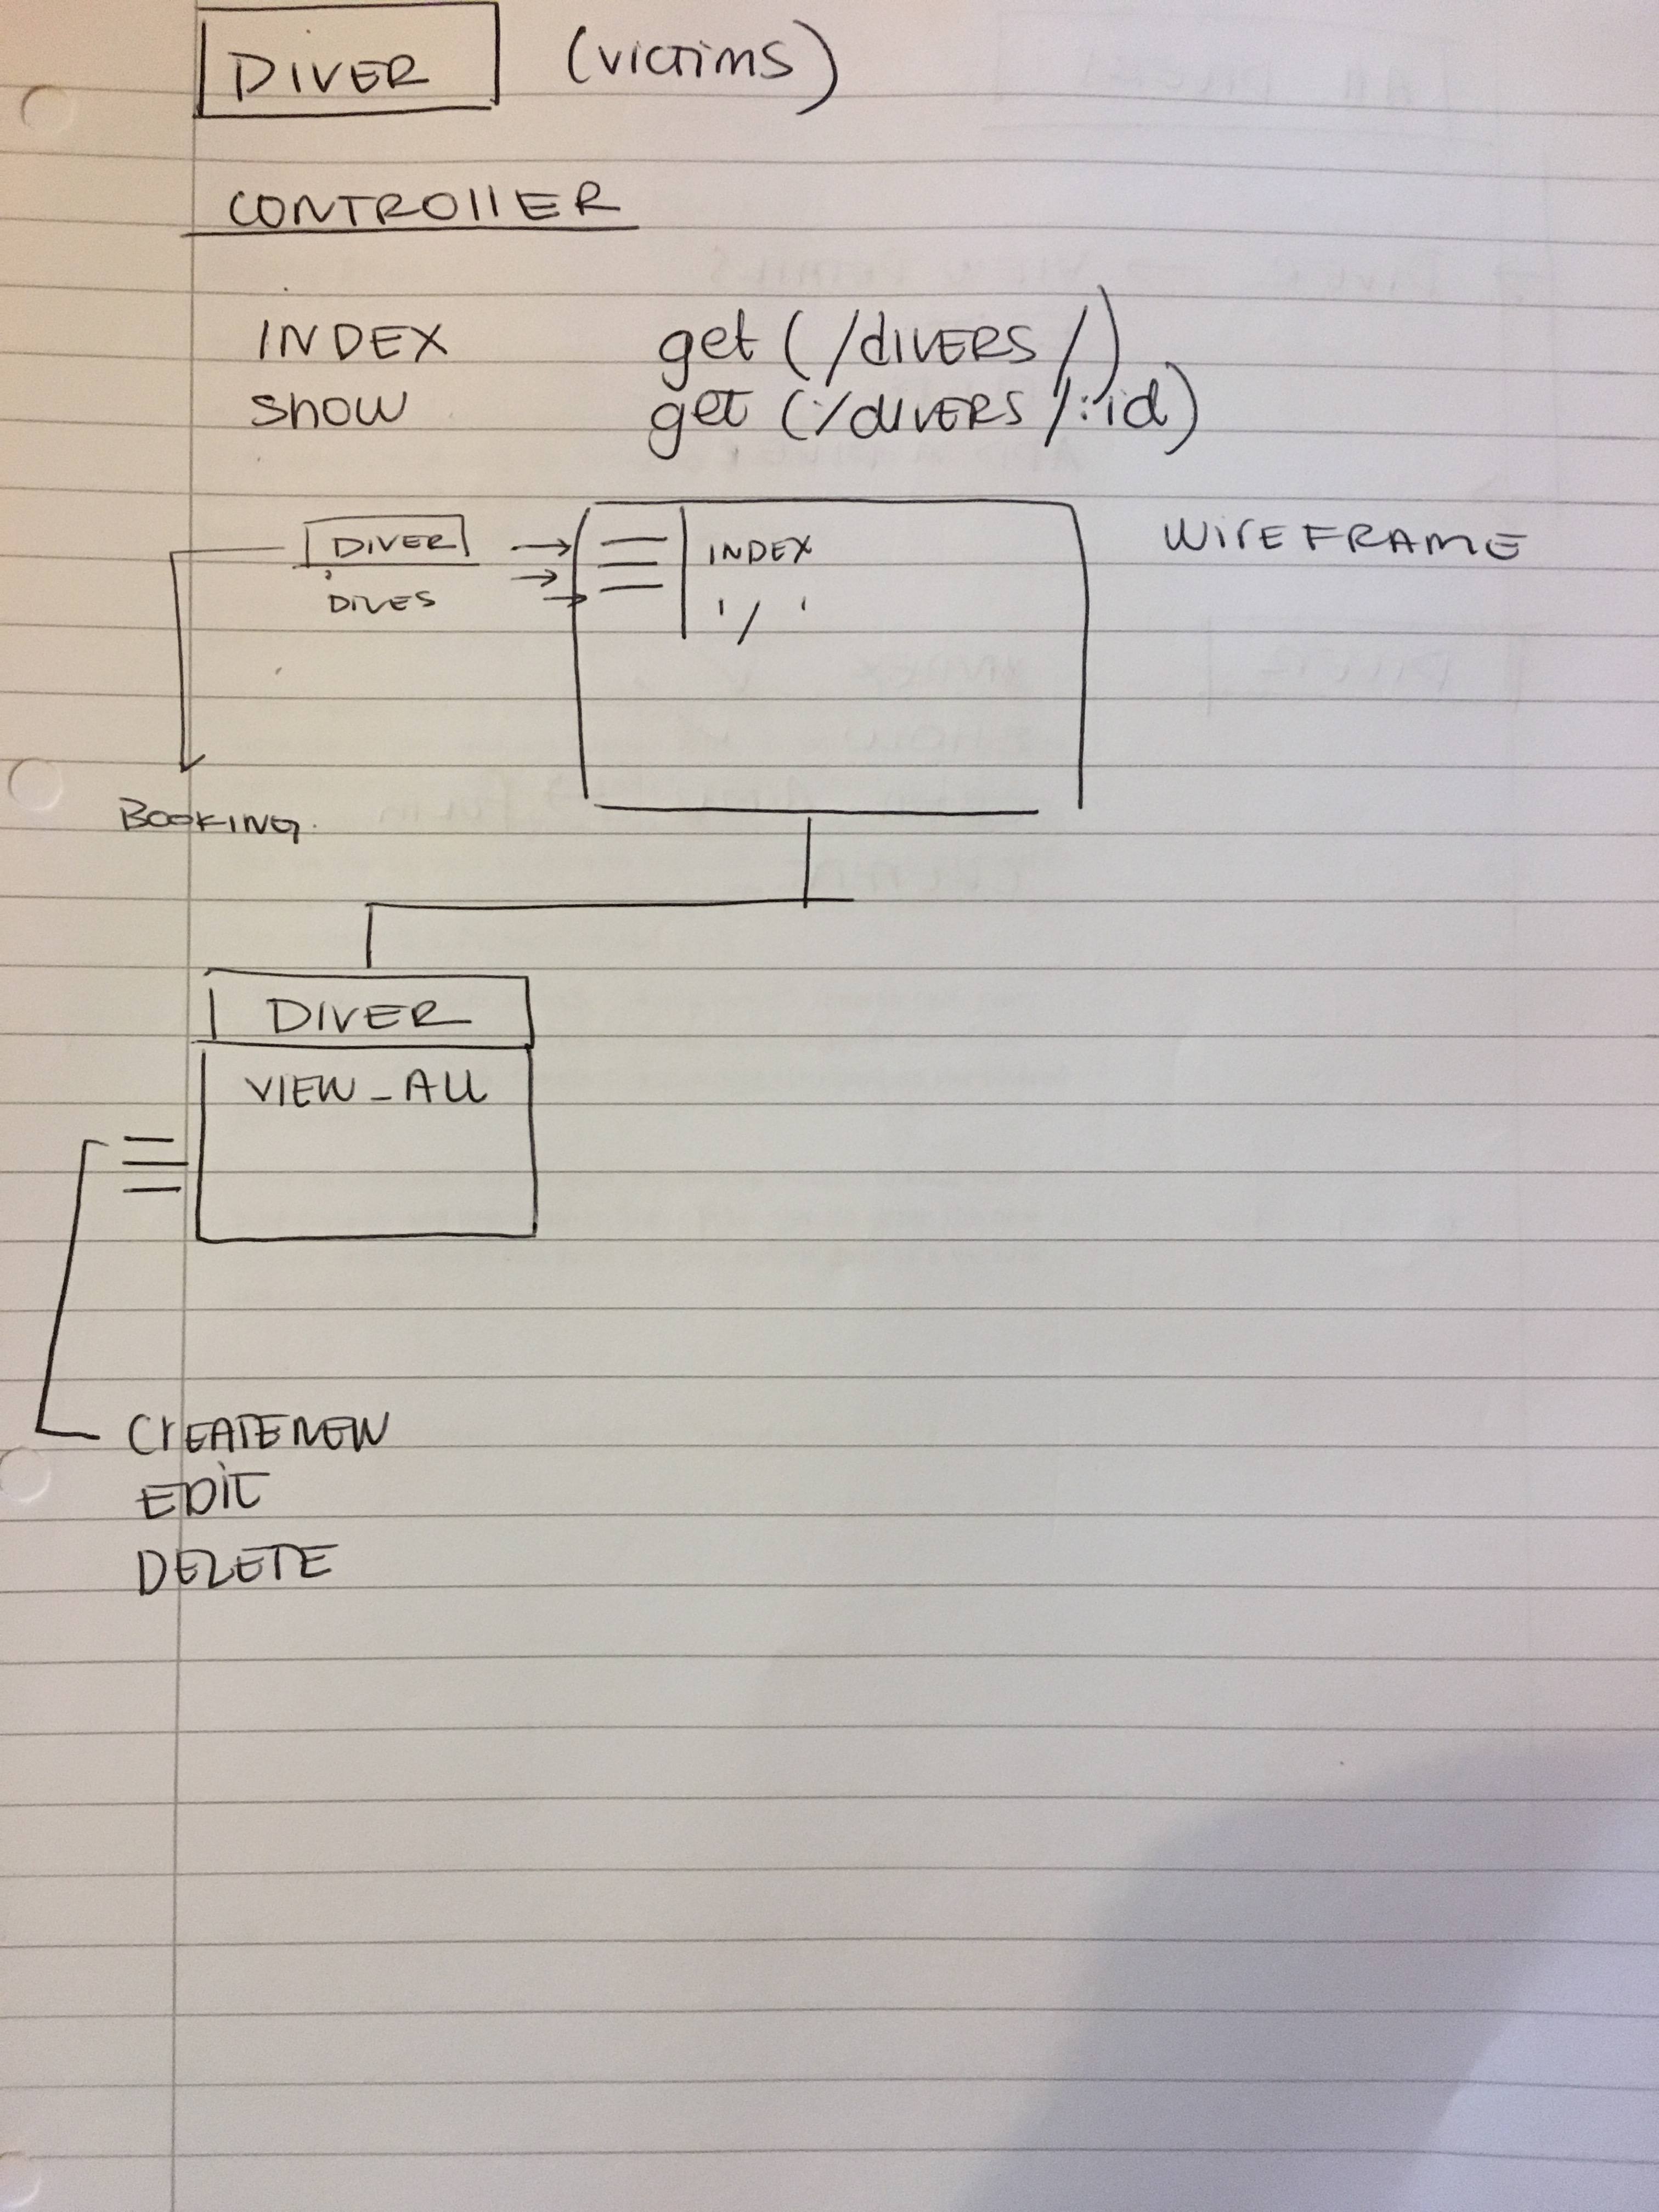 DIVER (victims)
CONTROllER
INDEX get (/dIVERS/)
show get (/dIVERS/:id)
DIVER
DIVES
INDEX
'/'
WIrEFRAmE
BOOKING.
DIVER
VIEW_ALL
CrEATENEW
EDIT
DELETE